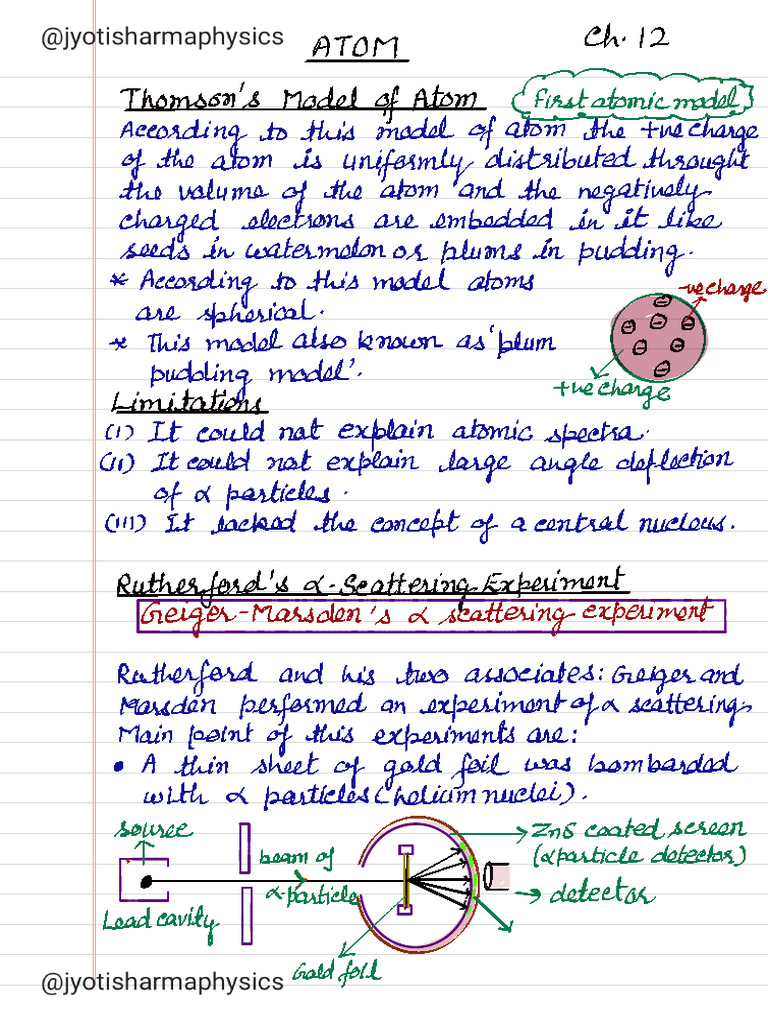 @jyotisharmaphysics
ATOM
Ch. 12
Thomson's Model of Atom
First atomic model
According to this model of atom the +ve charge
of the atom is uniformly distributed throught
the volume of the atom and the negatively
charged electrons are embedded in it like
seeds in watermelon or plums in pudding.
* According to this model atoms
are spherical.
-ve charge
* This model also known as 'plum
pudding model'.
+ve charge
Limitations
(i) It could not explain atomic spectra.
(ii) It could not explain large angle deflection
of α particles.
(iii) It lacked the concept of a central nucleus.
Rutherford's α-Scattering Experiment
Geiger-Marsden's α scattering experiment
Rutherford and his two associates: Geiger and
Marsden performed an experiment of α scattering.
Main point of this experiments are:
• A thin sheet of gold foil was bombarded
with α particles (helium nuclei).
source
beam of
α-particle
ZnS coated screen
(α particle detector)
detector
Lead cavity
Gold foil
@jyotisharmaphysics